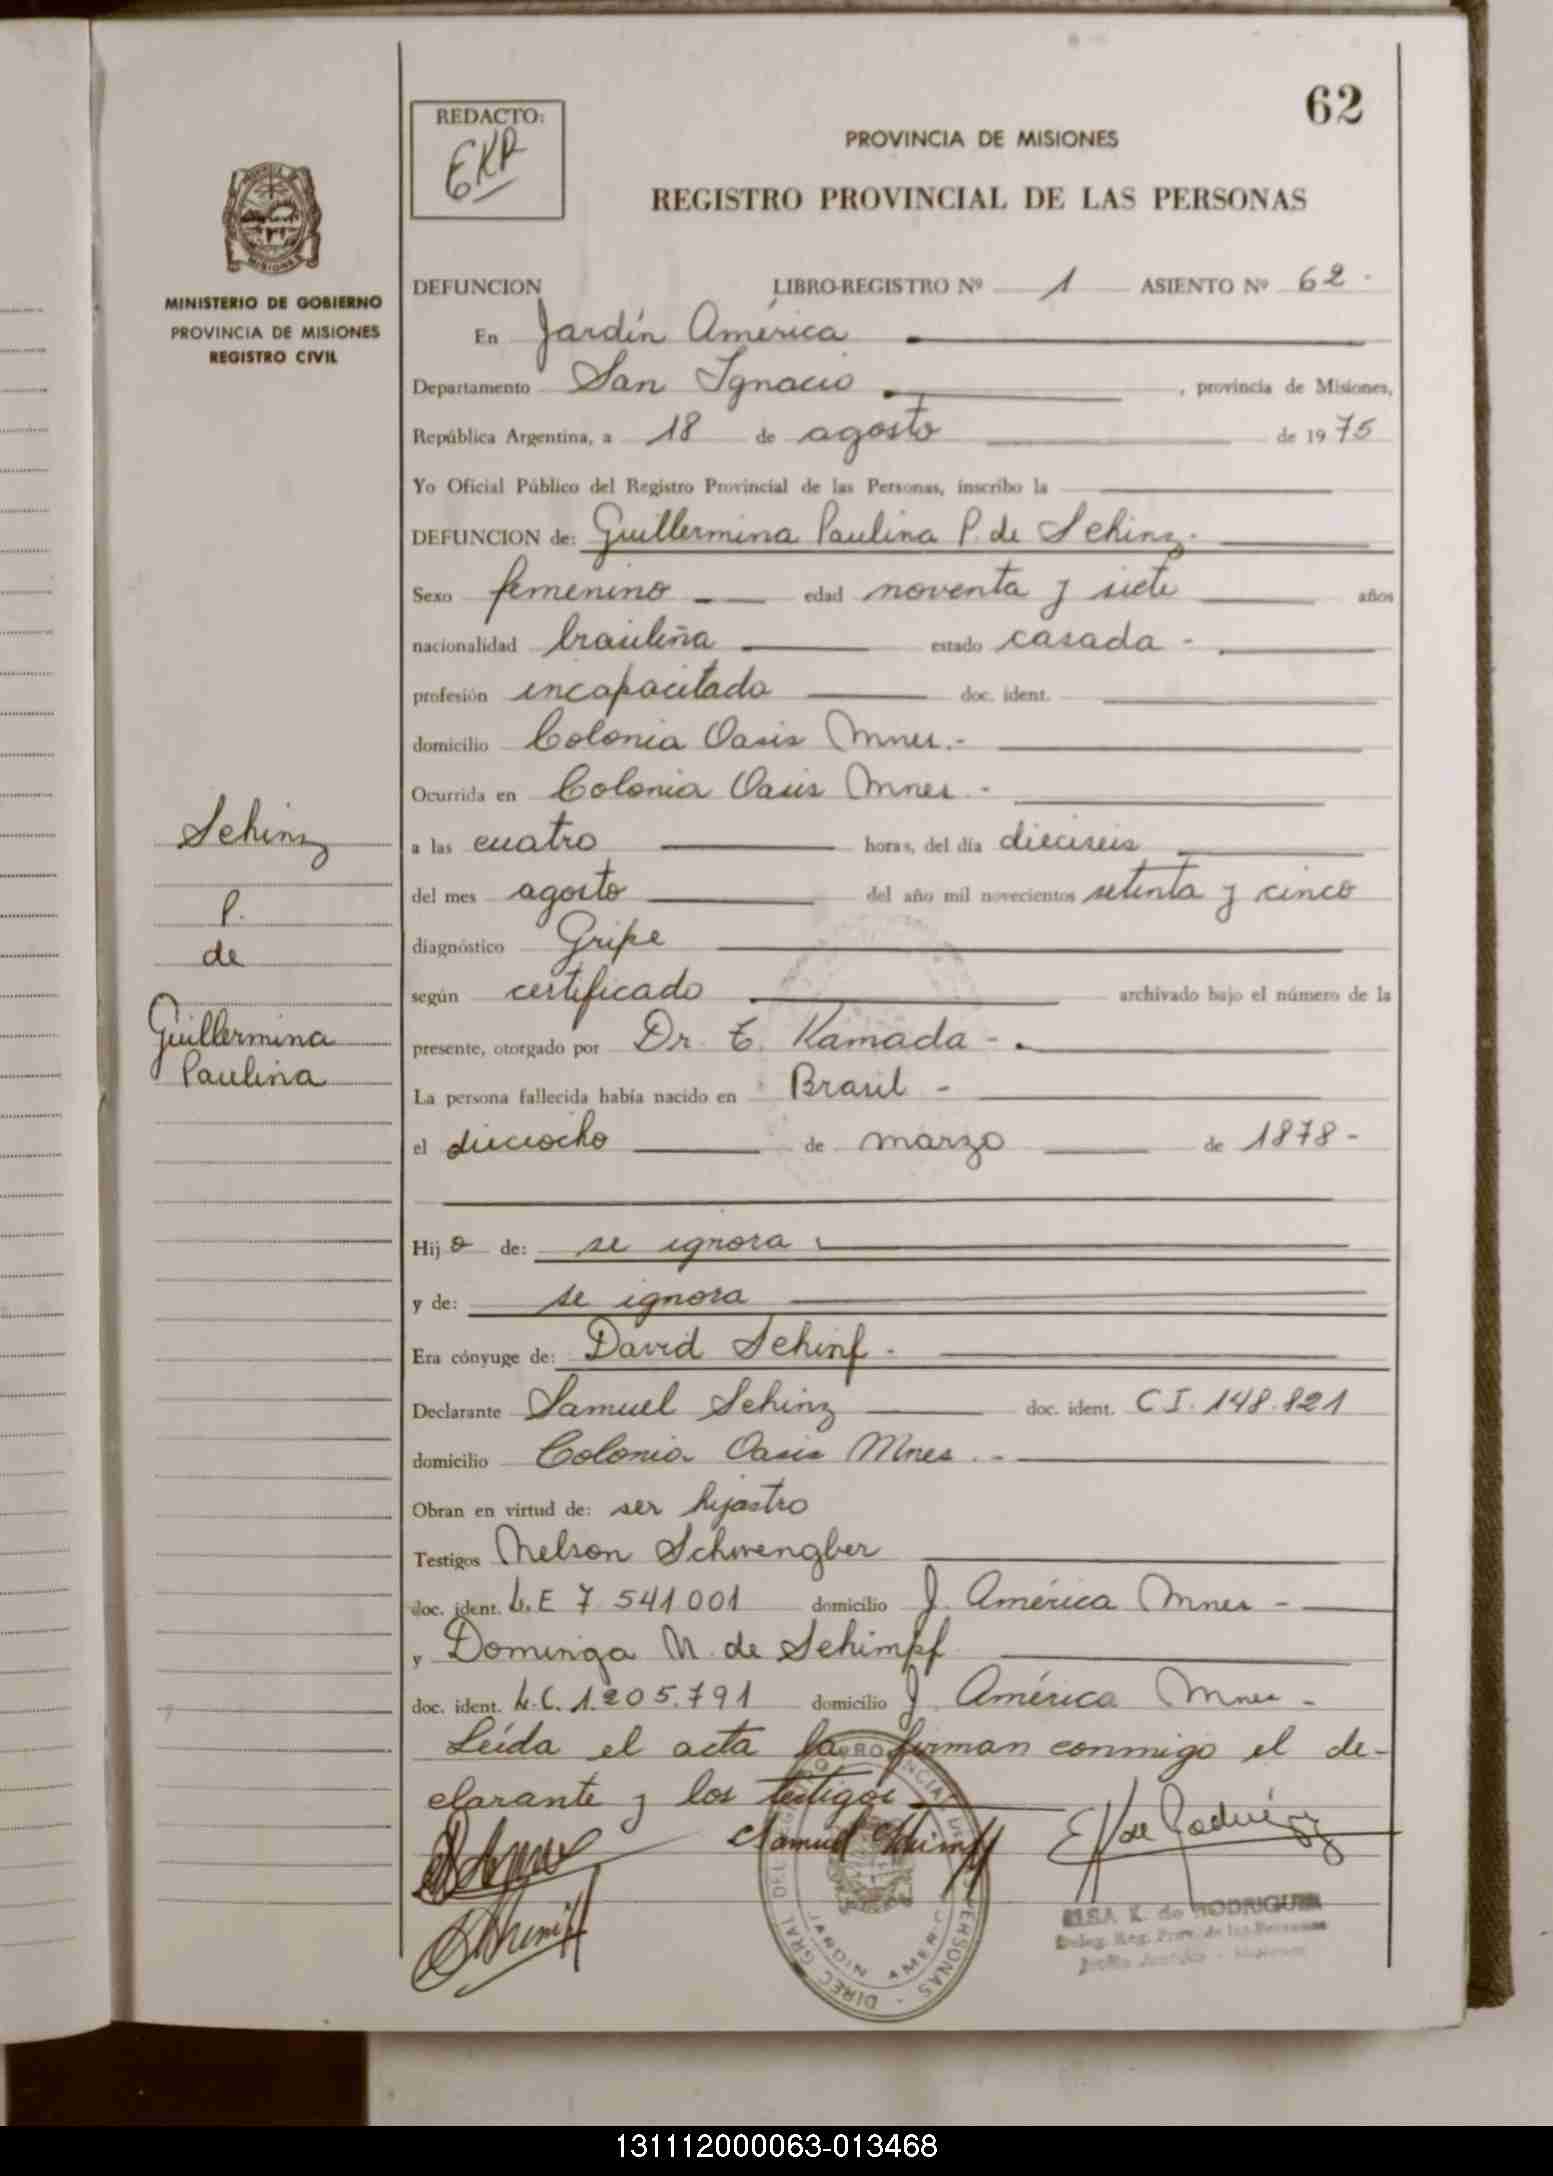 62
REDACTO:
EKR
PROVINCIA DE MISIONES
REGISTRO PROVINCIAL DE LAS PERSONAS
MISIONES
MINISTERIO DE GOBIERNO
PROVINCIA DE MISIONES
REGISTRO CIVIL
DEFUNCION LIBRO-REGISTRO Nº 1 ASIENTO Nº 62-
En Jardín América
Departamento San Ignacio, provincia de Misiones,
República Argentina, a 18 de agosto de 1975
Yo Oficial Público del Registro Provincial de las Personas, inscribo la
DEFUNCION de: Guillermina Paulina P. de Schinz.
Sexo femenino edad noventa y siete años
nacionalidad brasileña estado casada -
profesión incapacitada doc. ident.
domicilio Colonia Oasis Mnes.-
Ocurrida en Colonia Oasis Mnes.-
a las cuatro horas, del día dieciseis
del mes agosto del año mil novecientos setenta y cinco
diagnóstico Gripe
según certificado archivado bajo el número de la
presente, otorgado por Dr. E. Kamada -
La persona fallecida había nacido en Brasil -
el dieciocho de marzo de 1878-
Hija de: se ignora
y de: se ignora
Era cónyuge de: David Schinf-
Declarante Samuel Schinz doc. ident. C I. 148.821
domicilio Colonia Oasis Mnes.-
Obran en virtud de: ser hijastro
Testigos Nelson Schwengber
doc. ident. L.E 7.541001 domicilio J. América Mnes -
y Dominga N. de Schimpf
doc. ident. L.C. 1.205.791 domicilio J. América Mnes -
Leída el acta la firman conmigo el de-
clarante y los testigos
Schinz
P.
de
Guillermina
Paulina
Samuel Schimpf
E K de Rodríguez
ELSA K. de RODRIGUEZ
Deleg. Reg. Prov. de las Personas
JARDIN AMERICA
131112000063-013468